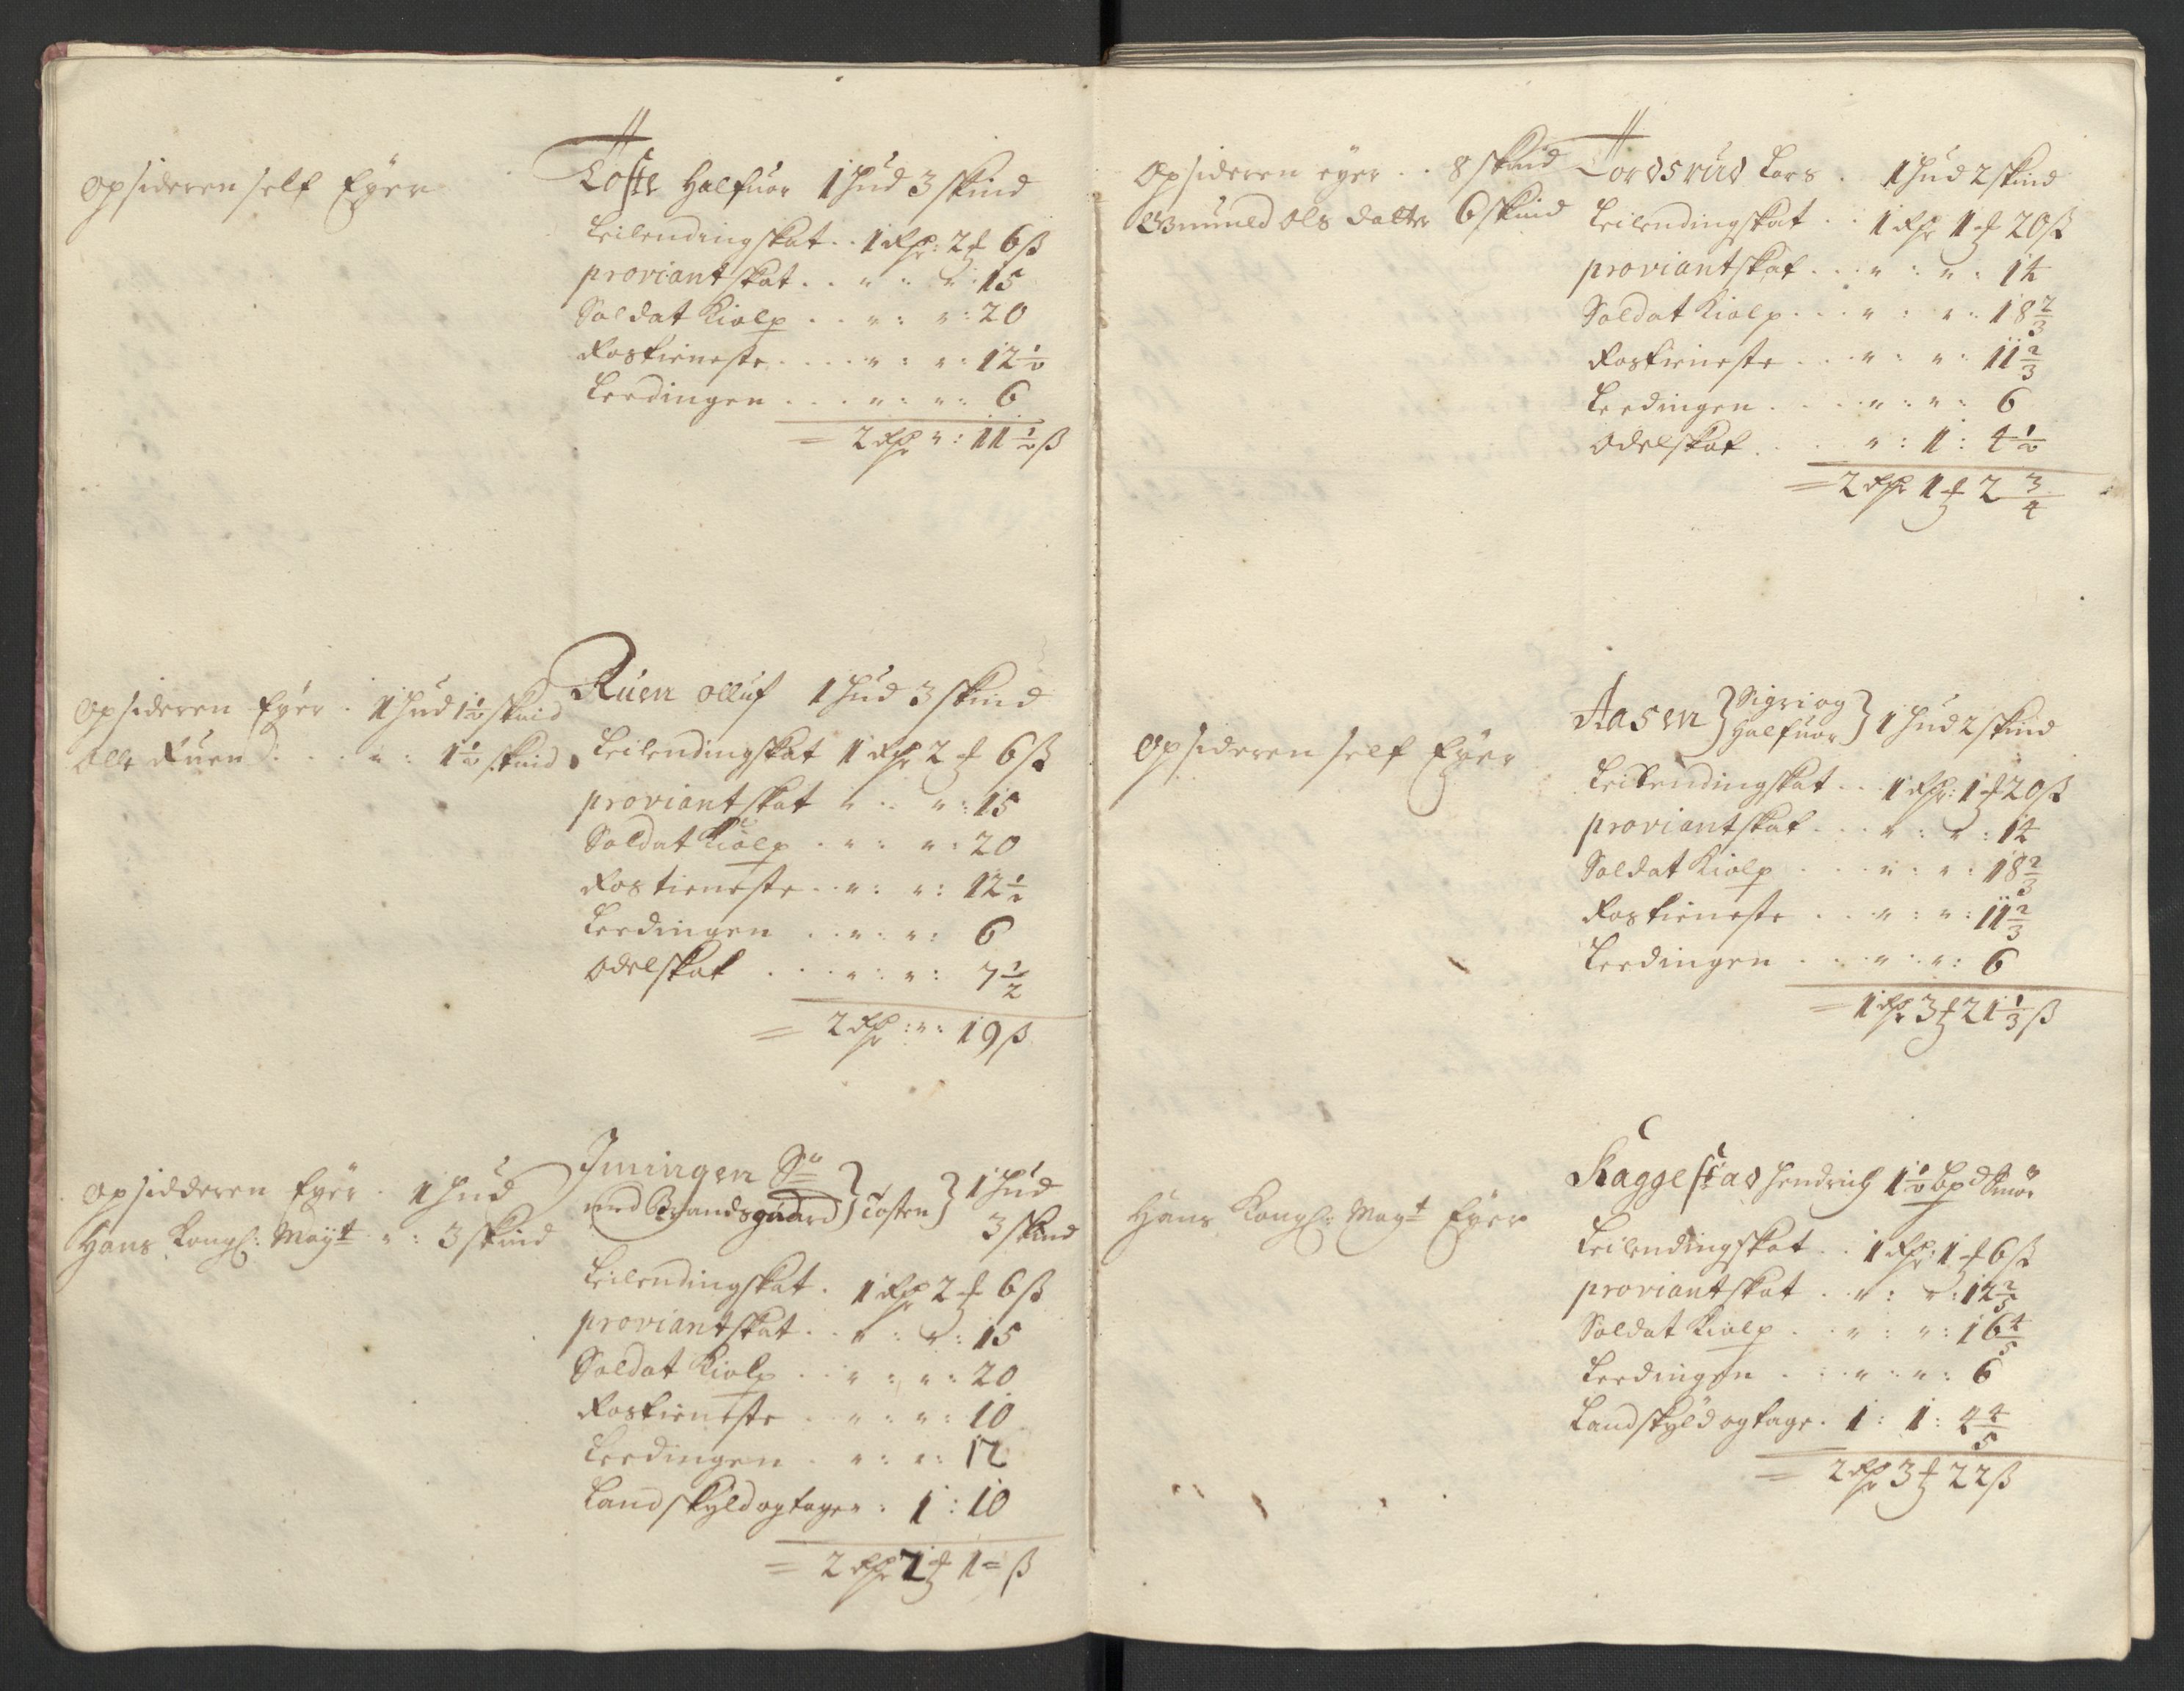 Opsideren self Eyer
Tofte Halfuor 1 Hud 3 skind
Leilendingskat . . 1 Rdr: 2 ₰ 6 ß
proviantskat . . " : " : 15
Soldat Kiolp . . " : " : 20
Rostieneste . . . . " : " : 12 ½
Leedingen . . . " : " : 6
= 2 Rdr " : 11 ½ ß
Opsideren Eyer . 1 Hud 1½ skind
Olle Ruen . . . " : 1½ skind
Ruen Olluf 1 Hud 3 skind
Leilendingskat 1 Rdr 2 ₰ 6 ß
proviantskat " : " : 15
Soldat Kiolp . " : " : 20
Rostieneste . . " : " : 12 ½
Leedingen . . " : " : 6
Odelskat . . . " : " : 7 ½
= 2 Rdr : " : 19 ß
Opsidderen Eyer . 1 Hud
Hans Kongl: Mayt " : 3 skind
Imingen Sø
med Brandsgaard } Tosten } 1 Hud
3 skind
Leilendingskat . 1 Rdr 2 ₰ 6 ß
proviantskat . . " : " : 15
Soldat Kiolp . . " : " : 20
Rostieneste . " : " : 10
Leedingen . " : " : 12
Landskyld og tagen : 1 : 10
= 2 Rdr 2 ₰ 1 = ß
Opsideren eyer . . 8 skind
Gunnild Ols datter 6 skind
Tordsrud Lars . 1 Hud 2 skind
Leilendingskat . . 1 Rdr 1 ₰ 20 ß
proviantskat . . . " : " : 14
Soldat Kiolp . . . " : " : 18 2/3
Rostieneste . . . " : " : 11 2/3
Leedingen . . . " : " : 6
Odelskat . . . " : 1 : 4 ½
= 2 Rdr 1 ₰ 2 3/4
Opsideren self Eyer
Aasen } Sigri og
Halfuor } 1 Hud 2 skind
Leilendingskat . . 1 Rdr: 1 ₰ 20 ß
proviantskat . . . " : " : 14
Soldat Kiolp . . . " : " : 18 2/3
Rostieneste . . . " : " : 11 2/3
Leedingen . . . " : " : 6
= 1 Rdr 3 ₰ 21 1/3 ß
Hans Kongl: Mayt Eyer
Kaggestad Hendrich 1½ bpd Smør
Leilendingskat . . 1 Rdr: 1 ₰ 6 ß
proviantskat . " : " : 12 2/5
Soldat Kiolp . . " : " : 16 4/5
Leedingen . . . " : " : 6
Landskyld og tage . 1 : 1 : 4 4/5
= 2 Rdr 3 ₰ 22 ß